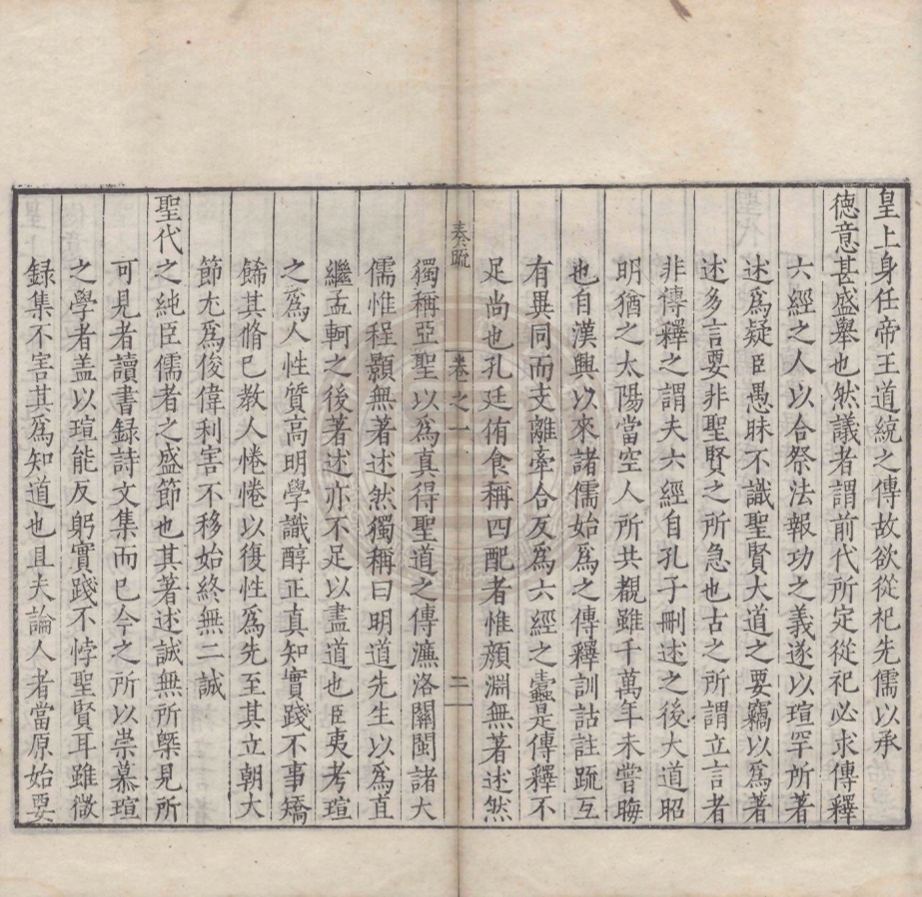 皇上身任帝王道統之傳故欲從祀先儒以承
德意甚盛舉也然議者謂前代所定從祀必求傳釋
六經之人以合祭法報功之義遂以瑄罕所著
述爲疑臣愚昧不識聖賢大道之要竊以爲著
述多言要非聖賢之所急也古之所謂立言者
非傳釋之謂夫六經自孔子刪述之後大道昭
明猶之太陽當空人所共覩雖千萬年未嘗晦
也自漢興以來諸儒始爲之傳釋訓詁註䟽互
有異同而支離牽合反爲六經之蠹是傳釋不
足尚也孔廷侑食稱四配者惟顏淵無著述然
奏疏 卷之一 二
獨稱亞聖以爲真得聖道之傳濂洛關閩諸大
儒惟程顥無著述然獨稱曰明道先生以爲直
繼孟軻之後著述亦不足以盡道也臣夷考瑄
之爲人性質高明學識醇正真知實踐不事矯
餙其脩已教人惓惓以復性爲先至其立朝大
節尤爲俊偉利害不移始終無二誠
聖代之純臣儒者之盛節也其著述誠無所槩見所
可見者讀書録詩文集而已今之所以崇慕瑄
之學者盖以瑄能反躬實踐不悖聖賢耳雖微
録集不害其爲知道也且夫論人者當原始要